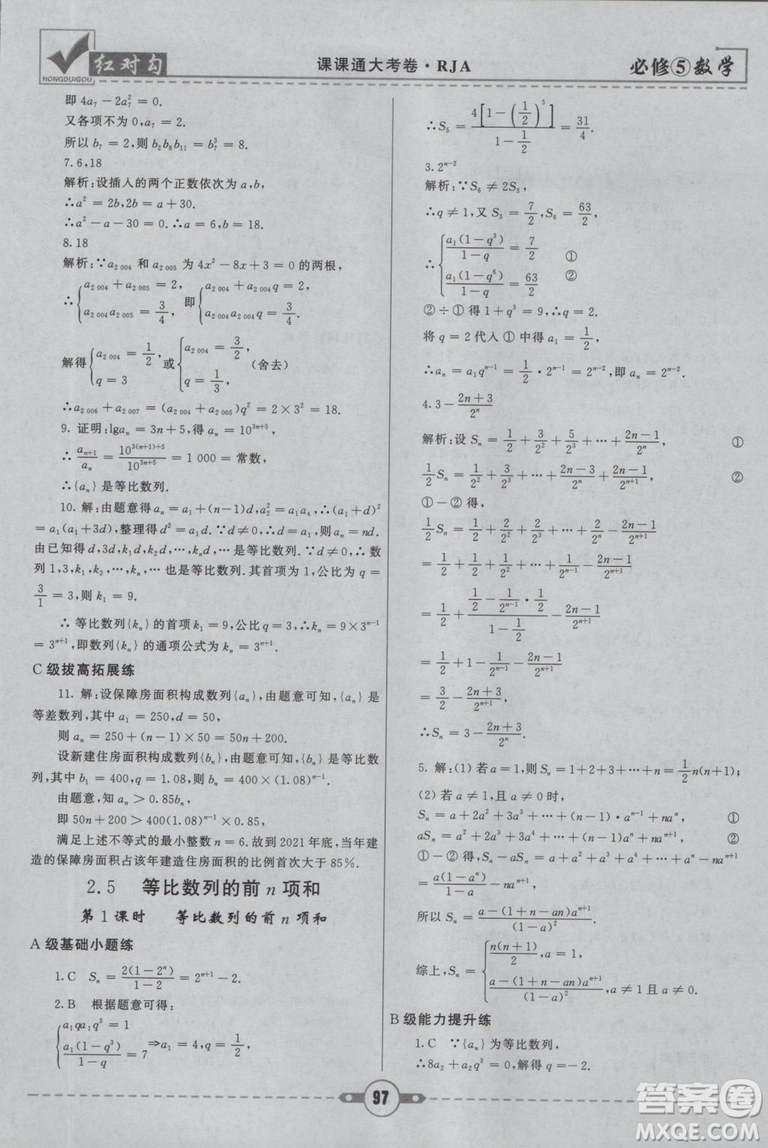 红对勾
HONGDUIGOU
课课通大考卷·RJA
必修⑤数学
即 4a₇－2a₇²＝0.
又各项不为 0,a₇＝2.
所以 b₇＝2,则 b₂b₈b₁₁＝b₇³＝8.
7. 6,18
解析:设插入的两个正数依次为 a,b,
∴a²＝2b,2b＝a＋30.
∴a²－a－30＝0. ∴a＝6,b＝18.
8. 18
解析:∵a₂₀₀₄ 和 a₂₀₀₅ 为 4x²－8x＋3＝0 的两根,
∴{a₂₀₀₄＋a₂₀₀₅＝2, a₂₀₀₄a₂₀₀₅＝3/4 即{a₂₀₀₄＋a₂₀₀₄q＝2, a₂₀₀₄²q＝3/4
解得{a₂₀₀₄＝1/2, q＝3 或{a₂₀₀₄＝3/2, q＝1/3 (舍去)
∴a₂₀₀₆＋a₂₀₀₇＝(a₂₀₀₄＋a₂₀₀₅)q²＝2×3²＝18.
9. 证明:lgaₙ＝3n＋5,得 aₙ＝10³ⁿ⁺⁵,
∴aₙ₊₁/aₙ＝10³⁽ⁿ⁺¹⁾⁺⁵/10³ⁿ⁺⁵＝1 000＝常数,
∴{aₙ}是等比数列.
10. 解:由题意得 aₙ＝a₁＋(n－1)d,a₂²＝a₁a₄,∴(a₁＋d)²
＝a₁(a₁＋3d),整理得 d²＝a₁d. ∵d≠0,∴d＝a₁,∴aₙ＝nd.
由已知得 d,3d,k₁d,k₂d,…,kₙd,…,是等比数列. ∵d≠0,∴数
列 1,3,k₁,k₂,…,kₙ,…,也是等比数列. 其首项为 1,公比为 q＝
3/1＝3,由此得 k₁＝9.
∴等比数列{kₙ}的首项 k₁＝9,公比 q＝3,∴kₙ＝9×3ⁿ⁻¹
＝3ⁿ⁺¹,即数列{kₙ}的通项公式为 kₙ＝3ⁿ⁺¹.
C 级拔高拓展练
11. 解:设保障房面积构成数列{aₙ},由题意可知,{aₙ}是
等差数列,其中 a₁＝250,d＝50,
则 aₙ＝250＋(n－1)50＝50n＋200.
设新建住房面积构成数列{bₙ},由题意可知,{bₙ}是等比数
列,其中 b₁＝400,q＝1.08,则 bₙ＝400×(1.08)ⁿ⁻¹.
由题意,知 aₙ＞0.85bₙ,
即 50n＋200＞400(1.08)ⁿ⁻¹·0.85.
满足上述不等式的最小整数 n＝6. 故到 2021 年底,当年建
造的保障房面积占该年建造住房面积的比例首次大于 85%.
2.5 等比数列的前 n 项和
第 1 课时 等比数列的前 n 项和
A 级基础小题练
1. C Sₙ＝2(1－2ⁿ)/(1－2)＝2ⁿ⁺¹－2.
2. B 根据题意可得:
{a₁qa₁q³＝1, a₁(1－q³)/(1－q)＝7 ⇒a₁＝4,q＝1/2,
∴S₅＝4[1－(1/2)⁵]/(1－1/2)＝31/4.
3. 2ⁿ⁻²
解析:∵S₆≠2S₃,
∴q≠1,又 S₃＝7/2,S₆＝63/2,
∴{a₁(1－q³)/(1－q)＝7/2 ①
a₁(1－q⁶)/(1－q)＝63/2 ②
②÷①得 1＋q³＝9,∴q＝2.
将 q＝2 代入①中得 a₁＝1/2,
∴aₙ＝a₁qⁿ⁻¹＝1/2·2ⁿ⁻¹＝2ⁿ⁻²,即 aₙ＝2ⁿ⁻².
4. 3－(2n＋3)/2ⁿ
解析:设 Sₙ＝1/2＋3/2²＋5/2³＋…＋(2n－1)/2ⁿ, ①
1/2Sₙ＝1/2²＋3/2³＋…＋(2n－3)/2ⁿ＋(2n－1)/2ⁿ⁺¹, ②
①－②得,
1/2Sₙ＝1/2＋2/2²＋2/2³＋…＋2/2ⁿ－(2n－1)/2ⁿ⁺¹
＝1/2＋1/2＋1/2²＋…＋1/2ⁿ⁻¹－(2n－1)/2ⁿ⁺¹
＝1/2＋(1/2－1/2ⁿ⁻¹·1/2)/(1－1/2)－(2n－1)/2ⁿ⁺¹
＝1/2＋1－1/2ⁿ⁻¹－(2n－1)/2ⁿ⁺¹
＝3/2－(2n＋3)/2ⁿ⁺¹,
∴Sₙ＝3－(2n＋3)/2ⁿ.
5. 解:(1)若 a＝1,则 Sₙ＝1＋2＋3＋…＋n＝n(n＋1)/2;
(2)若 a≠1 时,
Sₙ＝a＋2a²＋3a³＋…＋(n－1)·aⁿ⁻¹＋naⁿ, ①
aSₙ＝a²＋2a³＋3a⁴＋…＋(n－1)aⁿ＋naⁿ⁺¹, ②
①－②得,(1－a)Sₙ＝a＋a²＋a³＋…＋aⁿ－naⁿ⁺¹
＝a(1－aⁿ)/(1－a)－naⁿ⁺¹,
所以 Sₙ＝[a－(1＋n－an)aⁿ⁺¹]/(1－a)².
综上,Sₙ＝{n(n＋1)/2 (a＝1)
[a－(1＋n－an)aⁿ⁺¹]/(1－a)² (a≠1).
B 级能力提升练
1. C ∵{aₙ}为等比数列,
∴8a₂＋a₂q³＝0,解得 q＝－2.
97
答案圈
MXQE.COM